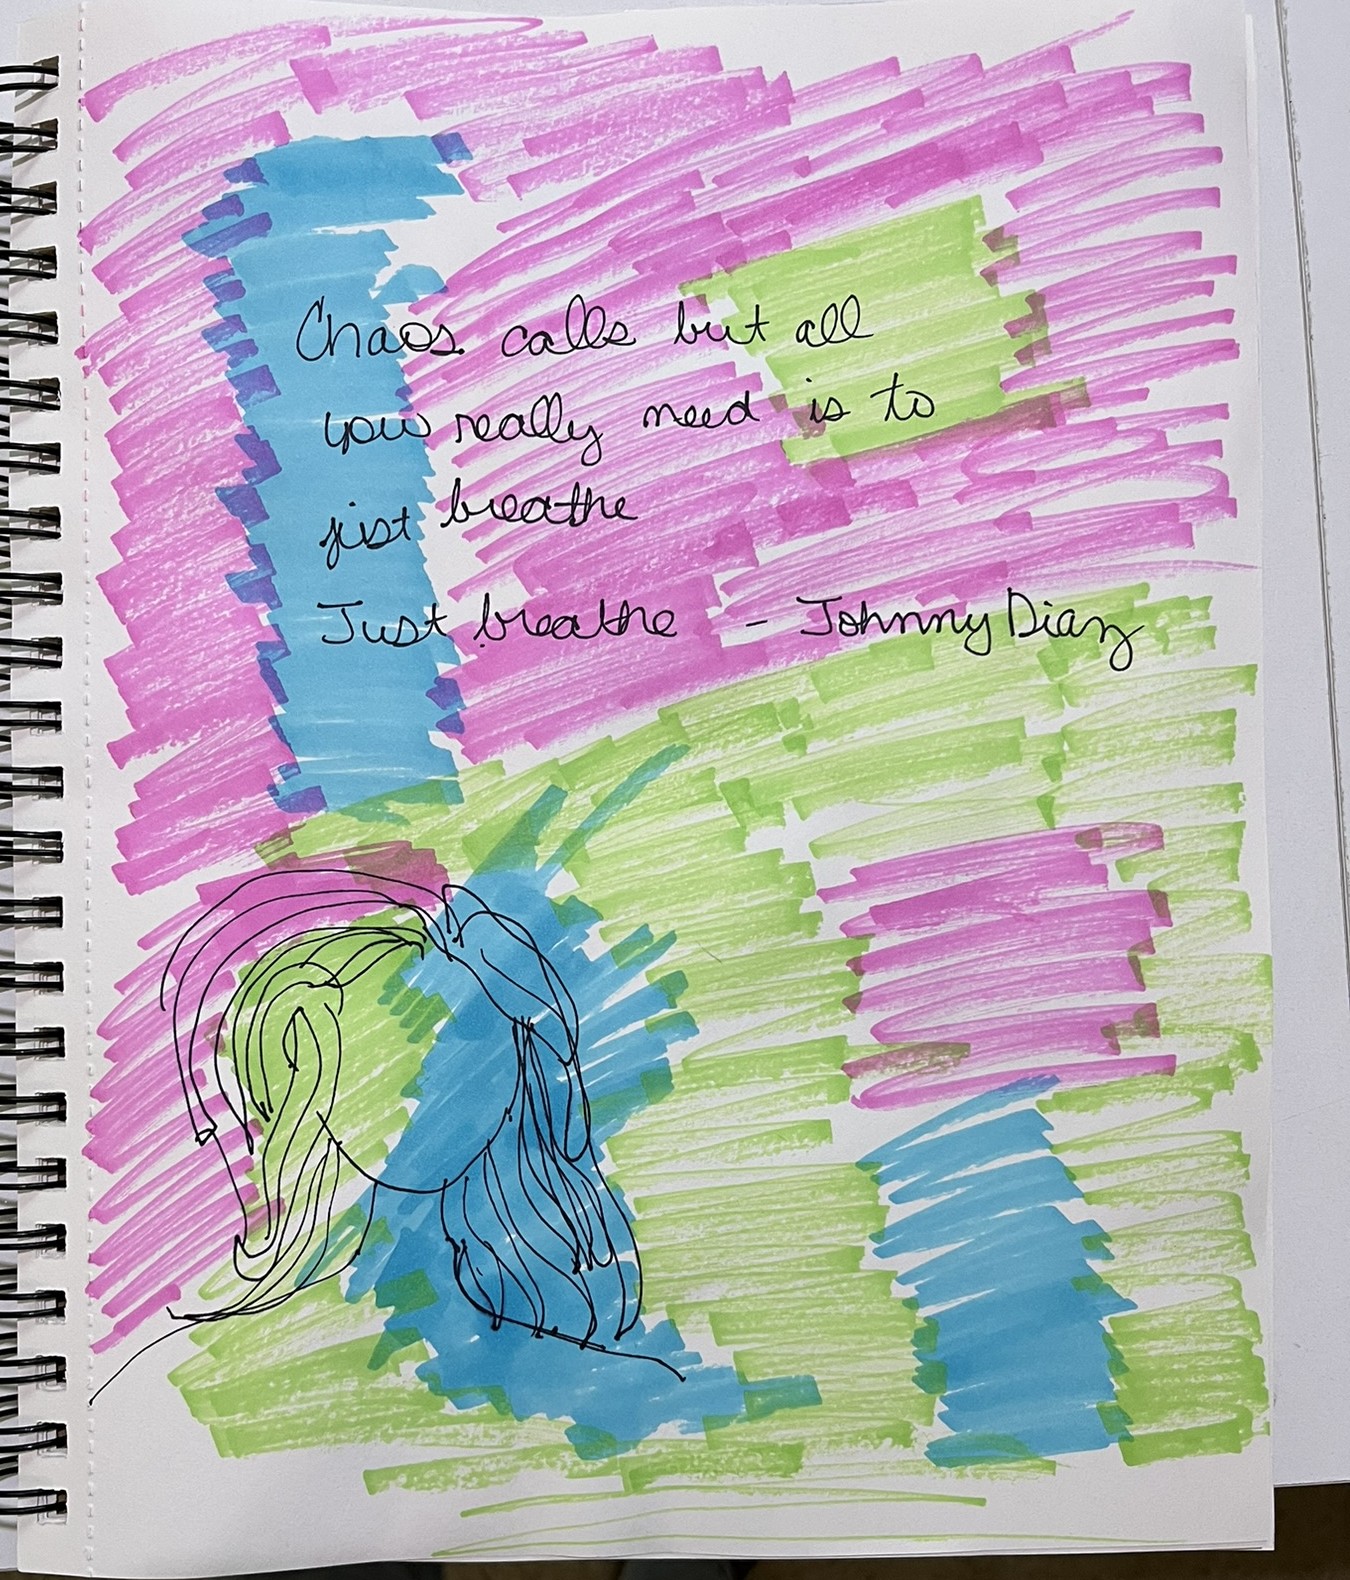 Chaos calls but all
you really need is to
just breathe
Just breathe - Johnny Diaz